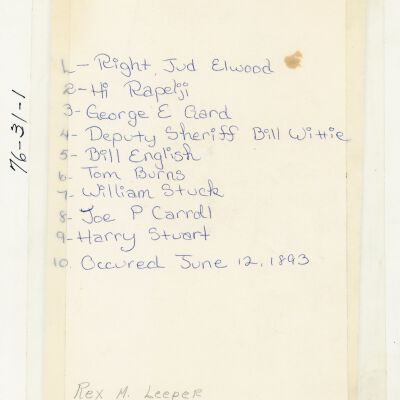 76-31-1
1- Right, Jud Elwood
2- Hi Rapelji
3- George E Gard
4- Deputy Sheriff Bill Wittie
5- Bill English
6- Tom Burns
7- William Stuck
8- Joe P Carroll
9- Harry Stuart
10. Occured June 12, 1893
Rex M. Leeper